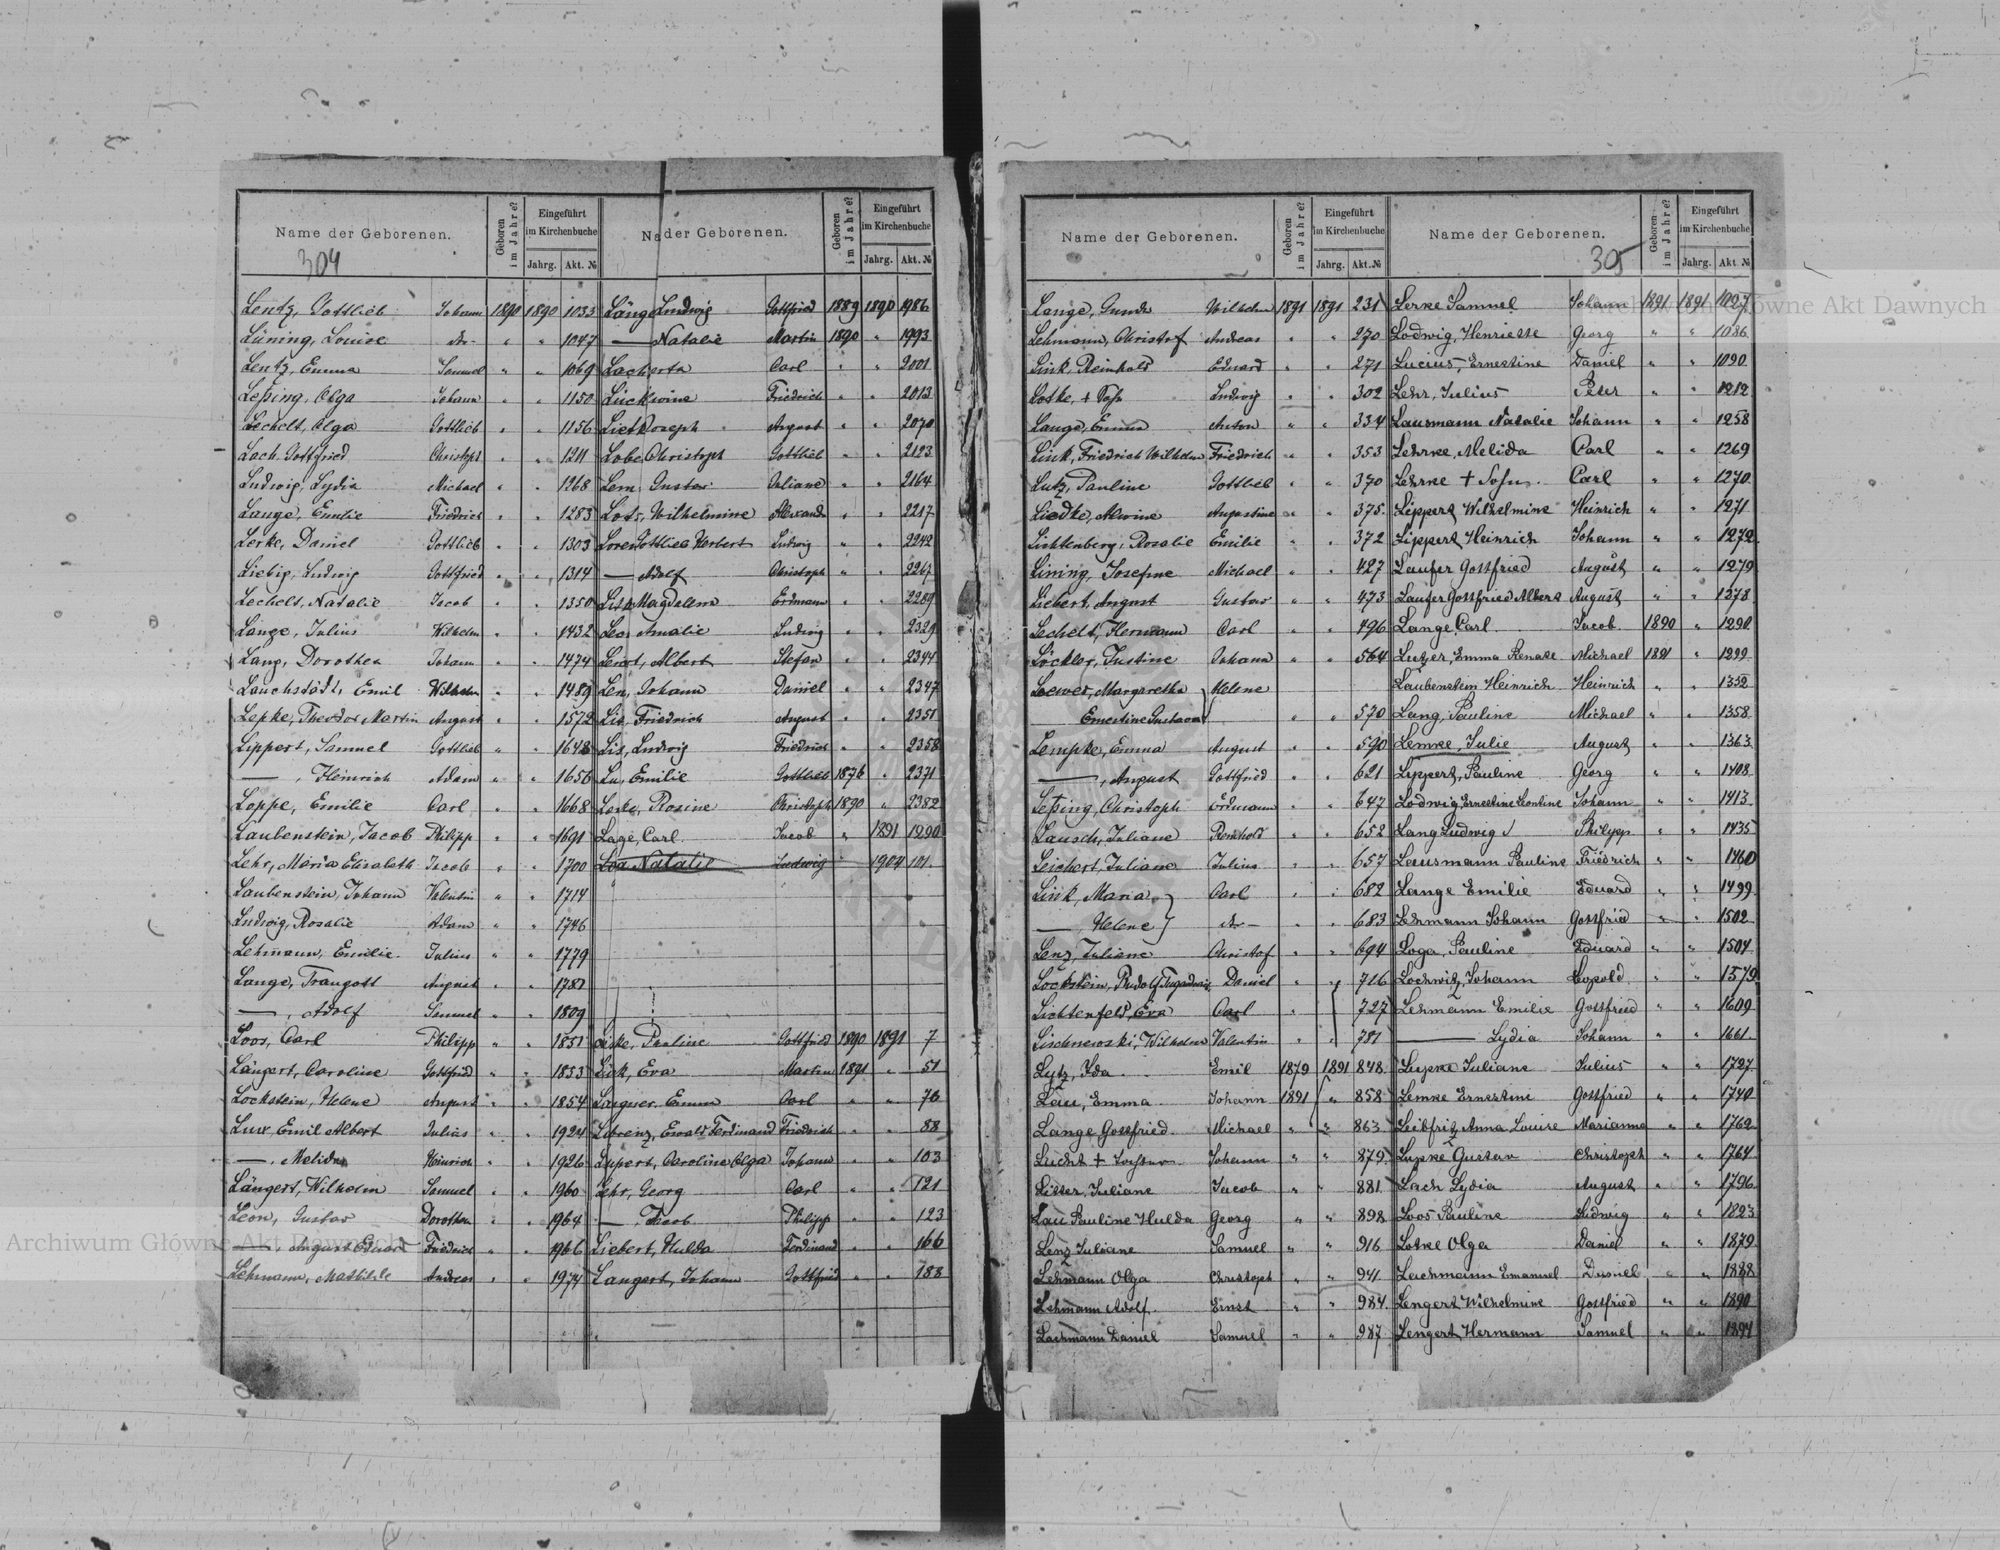 Name der Geborenen.
304
Geboren im Jahre?
Eingeführt im Kirchenbuche
Jahrg. Akt. №
Lentz, Gottlieb Johann 1890 1890 1033
Lüning, Louise do- " " 1047
Lentz, Emma Samuel " " 1069
Leßing, Olga Johann " " 1150
Lechelt, Olga Gottlieb " " 1156
Lach, Gottfried Christoph " " 1211
Ludwig, Lydia Michael " " 1268
Lange, Emilie Friedrich " " 1283
Lerke, Daniel Gottlieb " " 1303
Liebig, Ludwig Gottfried " " 1314
Lechelt, Natalie Jacob " " 1350
Lange, Julius Wilhelm " " 1432
Lang, Dorothea Johann " " 1474
Lauchstädt, Emil Wilhelm " " 1489
Lepke, Theodor Martin August " " 1572
Lippert, Samuel Gottlieb " " 1648
—, Heinrich Adam " " 1656
Loppe, Emilie Carl " " 1668
Laubenstein, Jacob Philipp " " 1691
Lehr, Maria Elisabeth Jacob " " 1700
Laubenstein, Johann Valentin " " 1714
Ludwig, Rosalie Adam " " 1746
Lehmann, Emilie Julius " " 1779
Lange, Traugott August " " 1781
—, Adolf Samuel " " 1809
Loos, Carl Philipp " " 1851
Längert, Caroline Gottfried " " 1853
Lockstein, Helene August " " 1854
Lux, Emil Albert Julius " " 1924
—, Melida Heinrich " " 1926
Längert, Wilhelm Samuel " " 1960
Leon, Gustav Dorothea " " 1964
—, August Eduard Friedrich " " 1966
Lehmann, Mathilde Andreas " " 1974
Na der Geborenen.
Geboren im Jahre?
Eingeführt im Kirchenbuche
Jahrg. Akt. №
Länge Ludwig Gottfried 1889 1890 1986
— Natalie Martin 1890 " 1993
Carl " " 2001
Friedrich " " 2013
August " " 2070
Lobe, Christoph Gottlieb " " 2123
Lem, Gustav Juliane " " 2164
Wilhelmine " " 2217
Gottlieb Herbert Ludwig " " 2242
— Adolf Christoph " " 2267
Magdalena Erdmann " " 2289
Amalie Ludwig " " 2329
Albert Stefan " " 2344
Johann Daniel " " 2347
Friedrich August " " 2351
Ludwig Friedrich " " 2358
Emilie Gottlieb 1876 " 2371
Rosine Christoph 1890 " 2382
Lage, Carl Jacob " 1891 1290
Natalie Ludwig 1904 101
Pauline Gottfried 1890 1891 7
Eva Martin 1891 " 51
Emma Carl " " 76
Lorenz, Ewald Ferdinand Friedrich " " 88
Lippert, Caroline Olga Johann " " 103
Lehr, Georg Carl " " 121
—, Jacob Philipp " " 123
Liebert, Hulda Ferdinand " " 166
Langert, Johann Gottfried " " 188
Name der Geborenen.
Geboren im Jahre?
Eingeführt im Kirchenbuche
Jahrg. Akt. №
Lange, Gunda Wilhelm 1891 1891 231
Lehmann, Christof Andreas " " 270
Link, Reinhold Eduard " " 271
Lotke, + Ludwig " " 302
Lange, Emma Anton " " 334
Link, Friedrich Wilhelm Friedrich " " 353
Lutz, Pauline Gottlieb " " 370
Liedke, Alwine Augustine " " 375
Lichtenberg, Rosalie Emilie " " 372
Lining, Josefine Michael " " 427
Liebert, August Gustav " " 473
Lechelt, Hermann Carl " " 496
Löckler, Justine Johann " " 564
Loewes, Margaretha Helene
Ernestine Gustava " " 570
Lempke, Emma August " " 590
—, August Gottfried " " 621
Leßing, Christoph Erdmann " " 647
Lausch, Juliane Reinhold " " 652
Leichert, Juliane Julius " " 657
Link, Maria Carl " " 682
—, Helene do- " " 683
Lenz, Juliane Christof " " 694
Lockstein, Rudolf Daniel " " 716
Lichtenfeld, Eva Carl 727
Lischnewski, Wilhelm Valentin " " 781
Lutz, Ida Emil 1879 1891 848
Lau, Emma Johann 1891 " 858
Lange Gottfried Michael " " 863
Lucht + Johann " " 879
Litter, Juliane Jacob " " 881
Lau Pauline Hulda Georg " " 898
Lenz Juliane Samuel " " 916
Lehmann Olga Christoph " " 941
Lehmann Adolf Ernst " " 984
Lachmann Daniel Samuel " " 987
Name der Geborenen.
305
Geboren im Jahre?
Eingeführt im Kirchenbuche
Jahrg. Akt. №
Lerke Samuel Johann 1891 1891 1027
Lodwig, Henriette Georg " " 1086
Lucius, Ernestine Daniel " " 1090
Lehr, Julius Peter " " 1212
Lausmann Natalie Johann " " 1258
Lehrke, Melida Carl " " 1269
Lehrke + Sohn. Carl " " 1270
Lippert, Wilhelmine Heinrich " " 1271
Lippert, Heinrich Johann " " 1272
Laufer Gottfried August " " 1279
Laufer Gottfried Albert August " " 1378
Lange, Carl Jacob 1890 " 1290
Lutzer, Emma Renate Michael 1891 " 1299
Laubenstein Heinrich Heinrich " " 1332
Lang, Pauline Michael " " 1358
Lemke, Julie August " " 1363
Lippert, Pauline Georg " " 1408
Lodwig, Ernestine Leontine Johann " " 1413
Lang Ludwig Philipp " " 1435
Lausmann Pauline Friedrich " " 1460
Lange Emilie Eduard " " 1499
Lehmann Johann Gottfried " " 1502
Loga, Pauline Eduard " " 1504
Lochwitz, Johann Leopold " " 1579
Lehmann Emilie Gottfried " " 1609
— Lydia Johann " " 1661
Lipke Juliane Julius " " 1727
Lemke Ernestine Gottfried " " 1740
Leibfritz, Anna Louise Marianna " " 1762
Lupke Gustav Christoph " " 1764
Lach Lydia August " " 1796
Loos Pauline Ludwig " " 1823
Lotke Olga Daniel " " 1879
Lachmann Emanuel Daniel " " 1888
Lengert Wilhelmine Gottfried " " 1890
Lengert, Hermann Samuel " " 1894
Archiwum Główne Akt Dawnych
Archiwum Główne Akt Dawnych